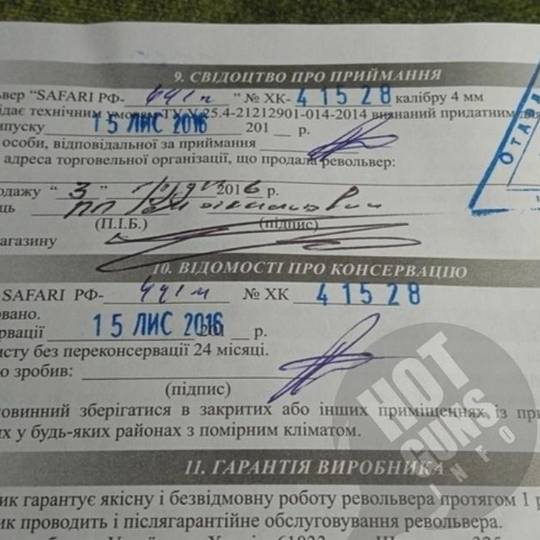 9. СВІДОЦТВО ПРО ПРИЙМАННЯ
ьвер “SAFARI РФ- 441м ” № ХК- 41528 калібру 4 мм
ідає технічним умовам ТУ У 25.4-21212901-014-2014 визнаний придатним для
ипуску 15 ЛИС 2016 201 __ р.
особи, відповідальної за приймання
адреса торговельної організації, що продала револьвер:
одажу “ 3 ” 2016 р.
ець ПП
(П.І.Б.) (підпис)
агазину
10. ВІДОМОСТІ ПРО КОНСЕРВАЦІЮ
SAFARI РФ- 441м № ХК 41528
овано.
ервації 15 ЛИС 2016 р.
исту без переконсервації 24 місяці.
ю зробив:
(підпис)
овинний зберігатися в закритих або інших приміщеннях, із при
их у будь-яких районах з помірним кліматом.
11. ГАРАНТІЯ ВИРОБНИКА
ик гарантує якісну і безвідмовну роботу револьвера протягом 1 р
ик проводить і післягарантійне обслуговування револьвера.
ОТДЛ
HOT
GUNS
INFO